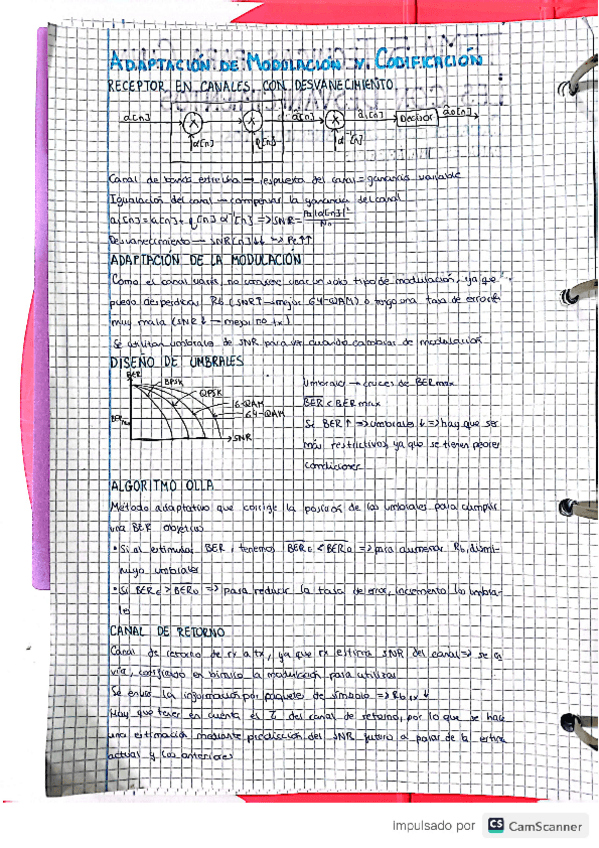 ADAPTACIÓN DE MODULACIÓN Y CODIFICACIÓN
RECEPTOR EN CANALES CON DESVANECIMIENTO
a[n] α[n] q[n] a[n] α⁻¹[n] a₁[n] Decisor a₀[n]
Canal de banda estrecha → respuesta del canal = ganancia variable
Igualación del canal → compensar la ganancia del canal
a₁[n] = a[n] + q[n] α⁻¹[n] => SNR =
Desvanecimiento → SNR[n]↓↓ → Pe↑↑
ADAPTACIÓN DE LA MODULACIÓN
Como el canal varía, no conviene usar un solo tipo de modulación, ya que
puedo desperdiciar Rb (SNR↑ → mejor 64-QAM) o tengo una tasa de error
muy mala (SNR↓ → mejor no tx)
Se utilizan umbrales de SNR para ver cuando cambiar de modulación
DISEÑO DE UMBRALES
BER
BPSK
QPSK
16-QAM
64-QAM
BER
SNR
Umbrales → cruces de BERmax
BER < BERmax
Si BER↑ => umbrales↓ => hay que ser
más restrictivos, ya que se tienen peores
condiciones
ALGORITMO OLLA
Método adaptativo que corrige la posición de los umbrales para cumplir
una BER objetivo
• Si al estimar BER, tenemos BERe < BERo => para aumentar Rb, dismi-
nuyo umbrales
• Si BERe > BERo => para reducir la tasa de error, incremento los umbra-
les
CANAL DE RETORNO
Canal de retorno de rx a tx, ya que rx estima SNR del canal => se en
vía, codificado en binario la modulación para utilizar
Se envía la información por paquetes de símbolo => Rb,tx ↓
Hay que tener en cuenta el del canal de retorno, por lo que se hace
una estimación mediante predicción del SNR futuro a partir de la
actual y los anteriores
Impulsado por CS CamScanner